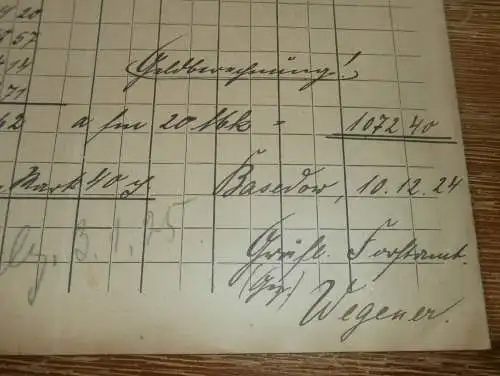 4 20
57
14
71
(Geldberechnung!)
62 a fm 20 Mk = 1072 40
Mark 40 Basedow, 10.12.24
3.1.25
Gräfl. Forstamt.
(Gez)
Wegener.